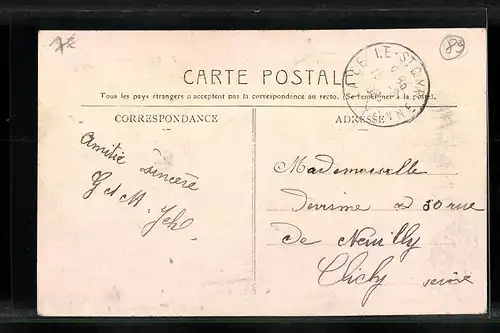 7e
89
CARTE POSTALE
Tous les pays étrangers n'acceptent pas la correspondance au recto. (Se renseigner à la poste).
CORRESPONDANCE
ADRESSE
YONNE
Amitié sincère
Mademoiselle
30 rue
de Neuilly
Clichy
Seine